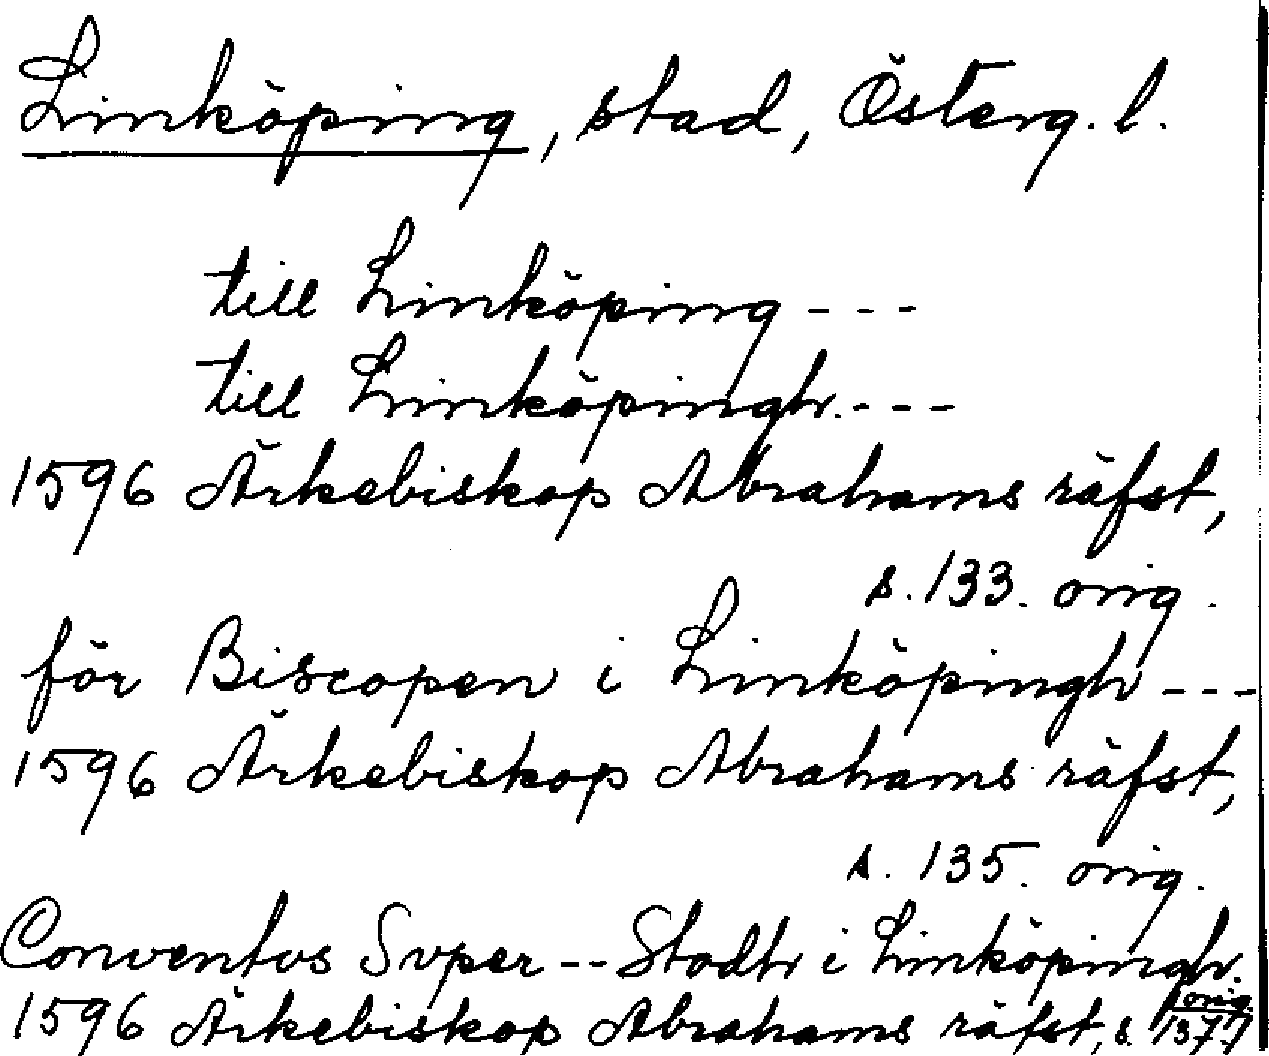 Linköping, stad, Österg. l.
till Linköping - - -
till Linköpingh. - - -
1596 Ärkebiskop Abrahams räfst,
s. 133. orig.
för Biscopen i Linköpingh - - -
1596 Ärkebiskop Abrahams räfst,
s. 135. orig.
Conventus Super -- Stadh i Linköpingh.
1596 Ärkebiskop Abrahams räfst, s. 137. orig.